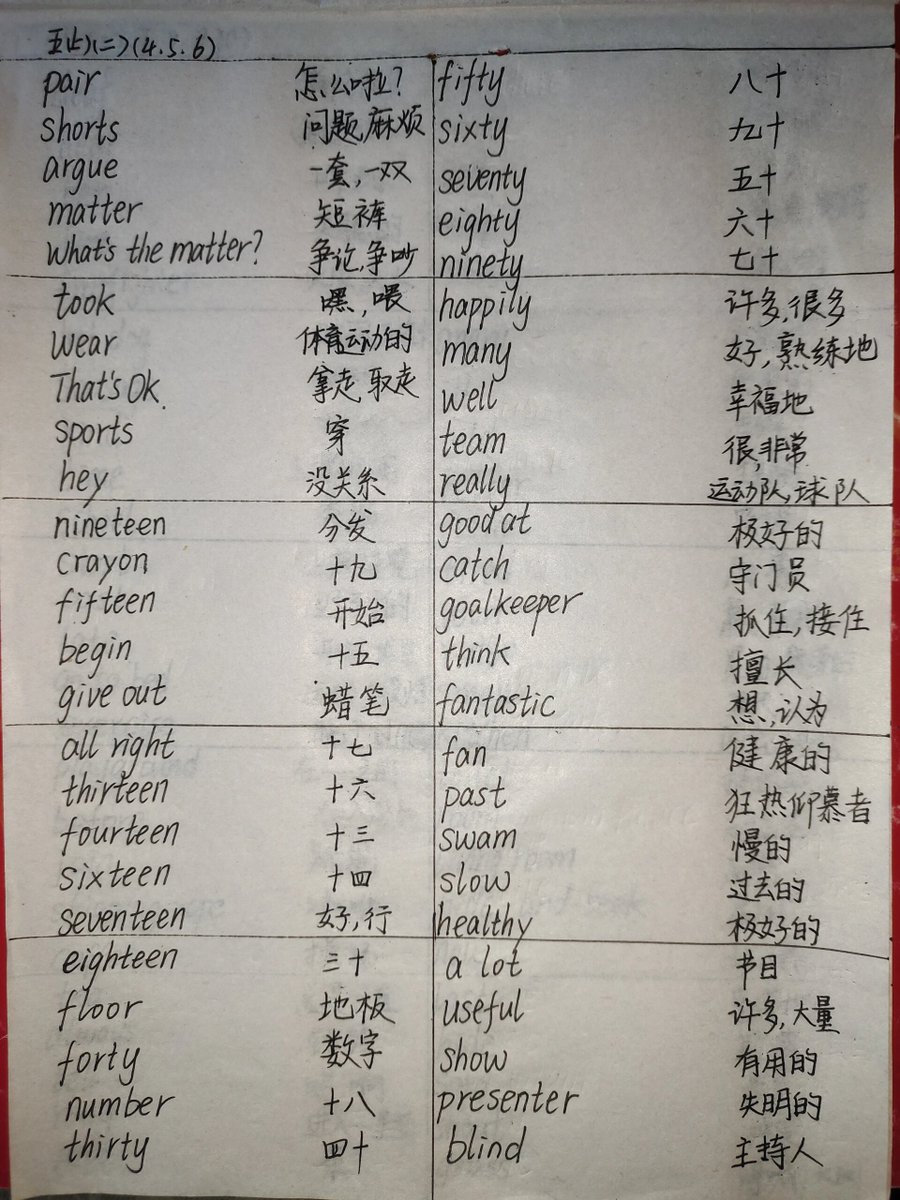 五上(二)(4.5.6)
pair 怎么啦? fifty 八十
shorts 问题,麻烦 sixty 九十
argue 一套,一双 seventy 五十
matter 短裤 eighty 六十
What's the matter? 争论,争吵 ninety 七十
took 嘿,喂 happily 许多,很多
wear 体育运动的 many 好,熟练地
That's Ok. 拿走,取走 well 幸福地
sports 穿 team 很,非常
hey 没关系 really 运动队,球队
nineteen 分发 good at 极好的
crayon 十九 catch 守门员
fifteen 开始 goalkeeper 抓住,接住
begin 十五 think 擅长
give out 蜡笔 fantastic 想,认为
all right 十七 fan 健康的
thirteen 十六 past 狂热仰慕者
fourteen 十三 swam 慢的
sixteen 十四 slow 过去的
seventeen 好,行 healthy 极好的
eighteen 三十 a lot 节目
floor 地板 useful 许多,大量
forty 数字 show 有用的
number 十八 presenter 失明的
thirty 四十 blind 主持人